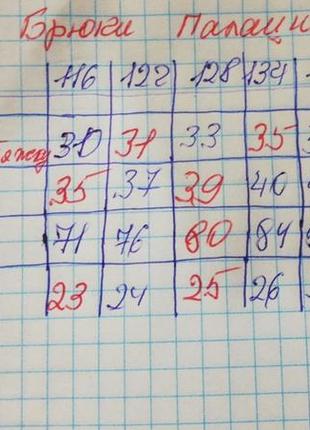 Брюки Палаци
116 122 128 134
30 31 33 35
35 37 39 40
71 76 80 84
23 24 25 26